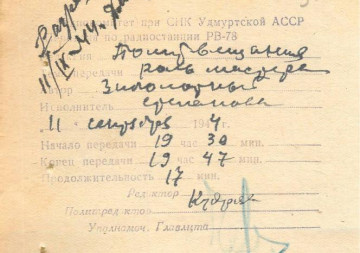 Разр
11/IX-44
митет при СНК Удмуртской АССР
по радиостанции РВ-78
Политвещания
передачи роль мастера
Исполнитель Степанова
11 сентября 194 4
Начало передачи 19 час. 30 мин.
Конец передачи 19 час. 47 мин.
Продолжительность 17 мин.
Редактор
Политредактор
Уполномоч. Главлита